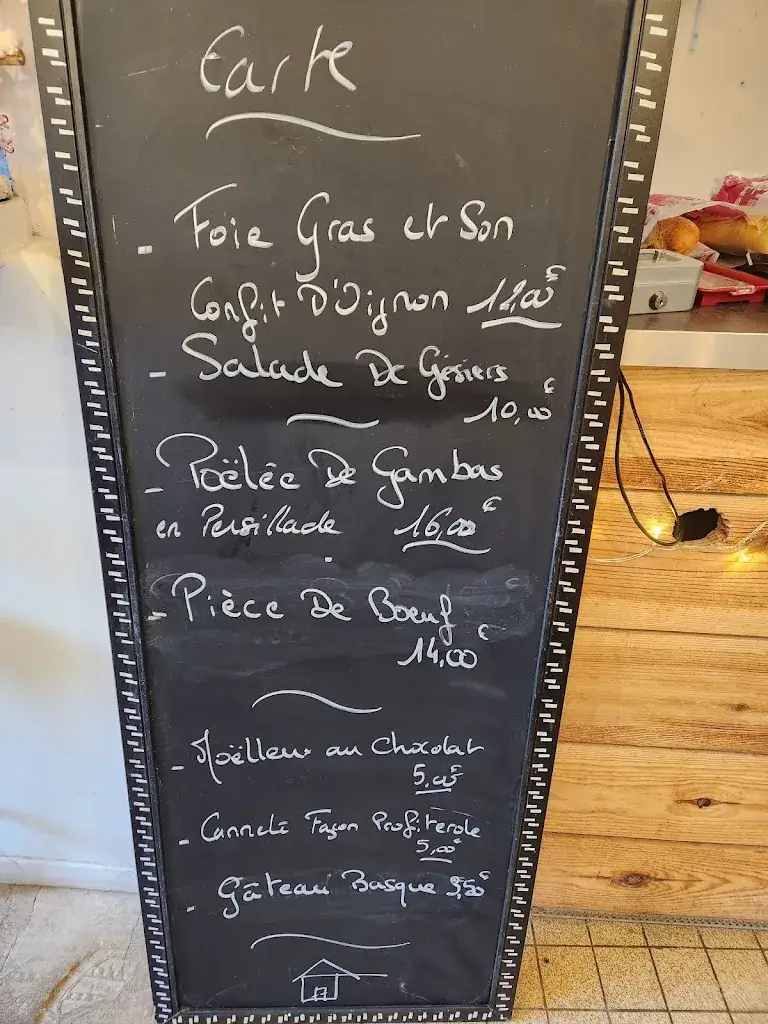 Carte
- Foie Gras et Son
Confit D'Oignon 12,00€
- Salade De Gésiers
10,00€
- Poëlée De Gambas
en Persillade 16,00€
- Pièce De Boeuf
14,00€
- Moëlleux au Chocolat
5,00€
- Cannelé Façon Profiterole
5,00€
- Gâteau Basque